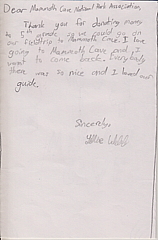 Dear Mammoth Cave National Park Association,
Thank you for donating money
to 5th grade so we could go on
our fieldtrip to Mammoth Cave. I love
going to Mammoth Cave and, I
want to come back. Everybody
there was so nice and I loved our
guide.
Sincerely,